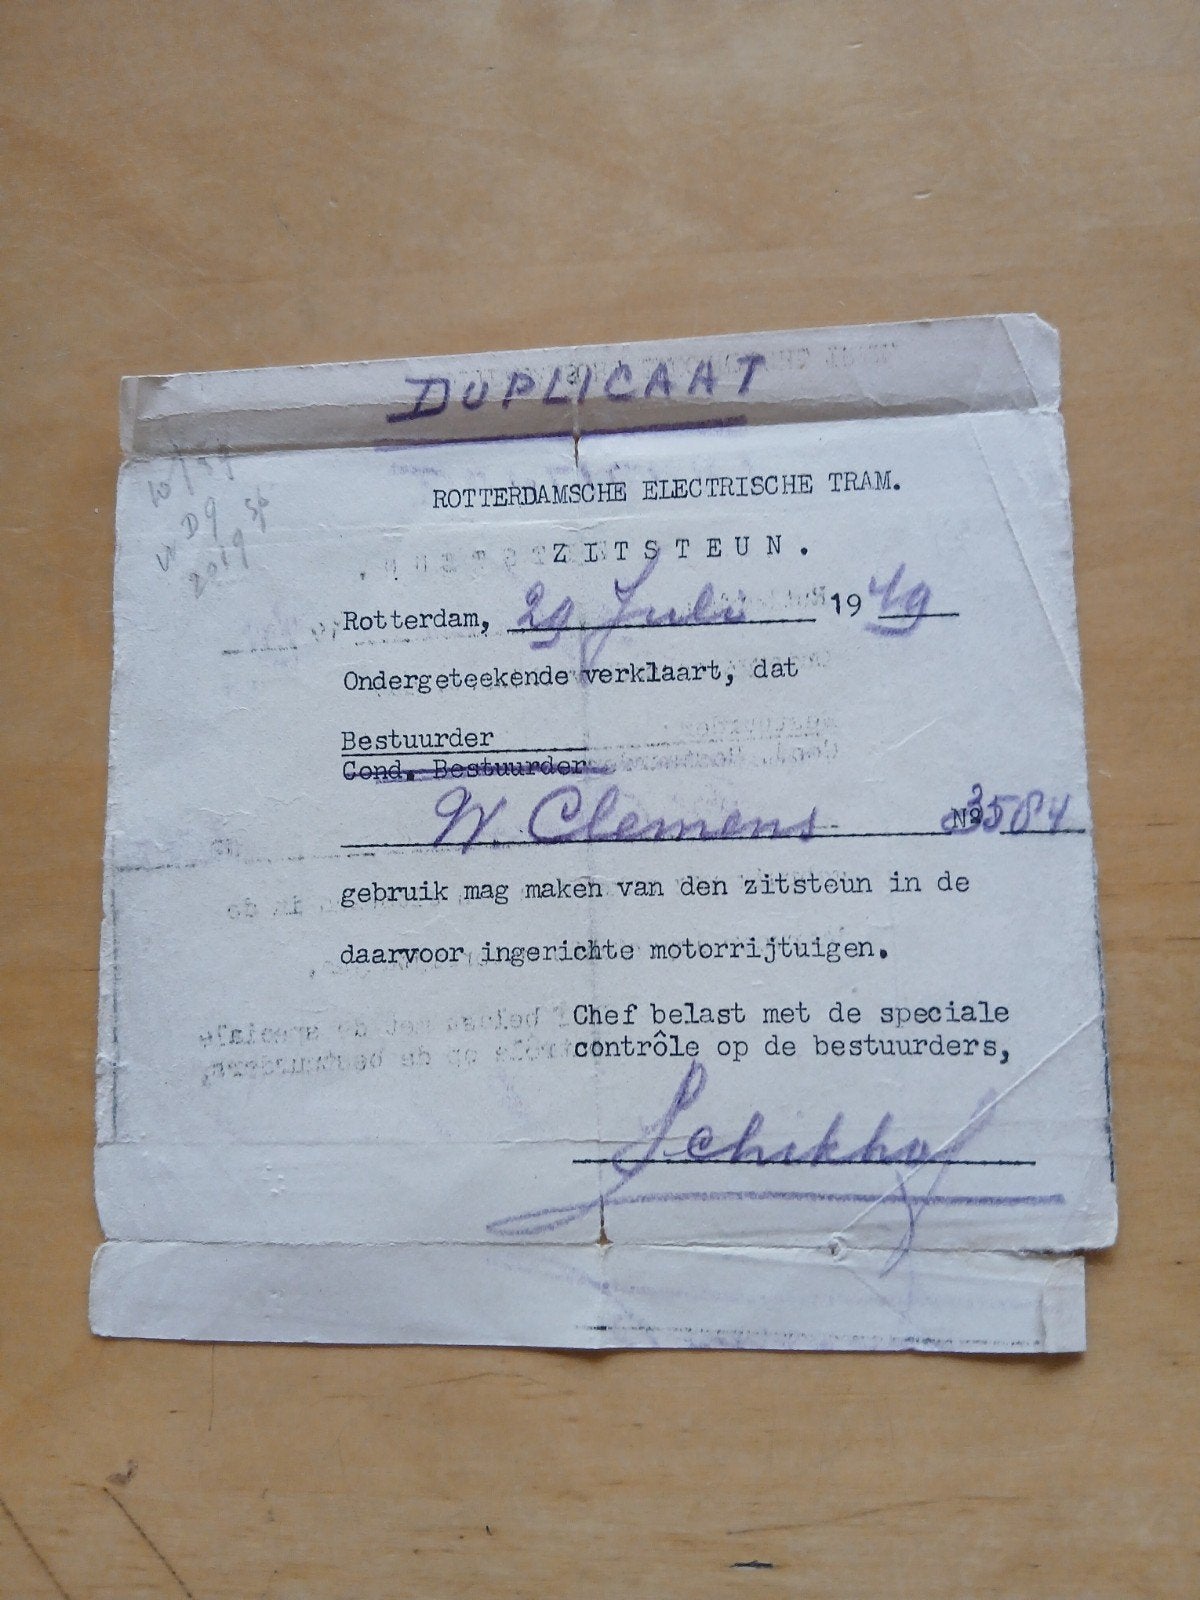 DUPLICAAT
ROTTERDAMSCHE ELECTRISCHE TRAM.
ZITSTEUN.
Rotterdam, 29 Juli 1949
Ondergeteekende verklaart, dat
Bestuurder
Cond. Bestuurder
W. Clemens No 3584
gebruik mag maken van den zitsteun in de
daarvoor ingerichte motorrijtuigen.
Chef belast met de speciale
contrôle op de bestuurders,
Schikhof